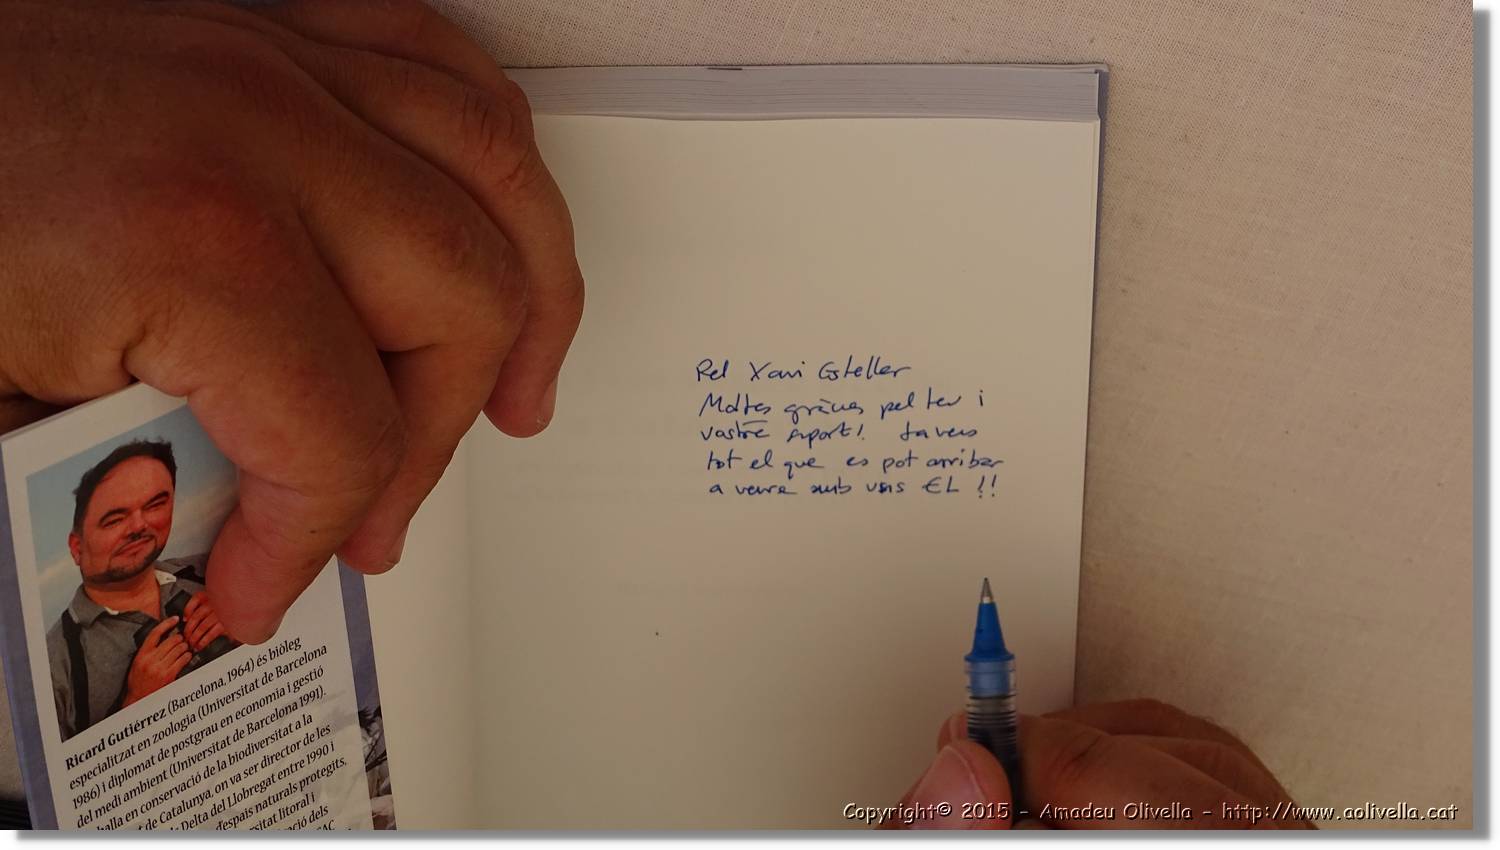 Pel Xavi Esteller
Moltes gràcies pel teu i
vostre suport! Ja veus
tot el que es pot arribar
a veure amb uns EL !!
Ricard Gutiérrez (Barcelona, 1964) és biòleg
especialitzat en zoologia (Universitat de Barcelona
1986) i diplomat de postgrau en economia i gestió
del medi ambient (Universitat de Barcelona 1991).
balla en conservació de la biodiversitat a la
t de Catalunya, on va ser director de les
Delta del Llobregat entre 1990 i
d'espais naturals protegits,
sitat litoral i
ació dels
Copyright© 2015 - Amadeu Olivella - http://www.aolivella.cat